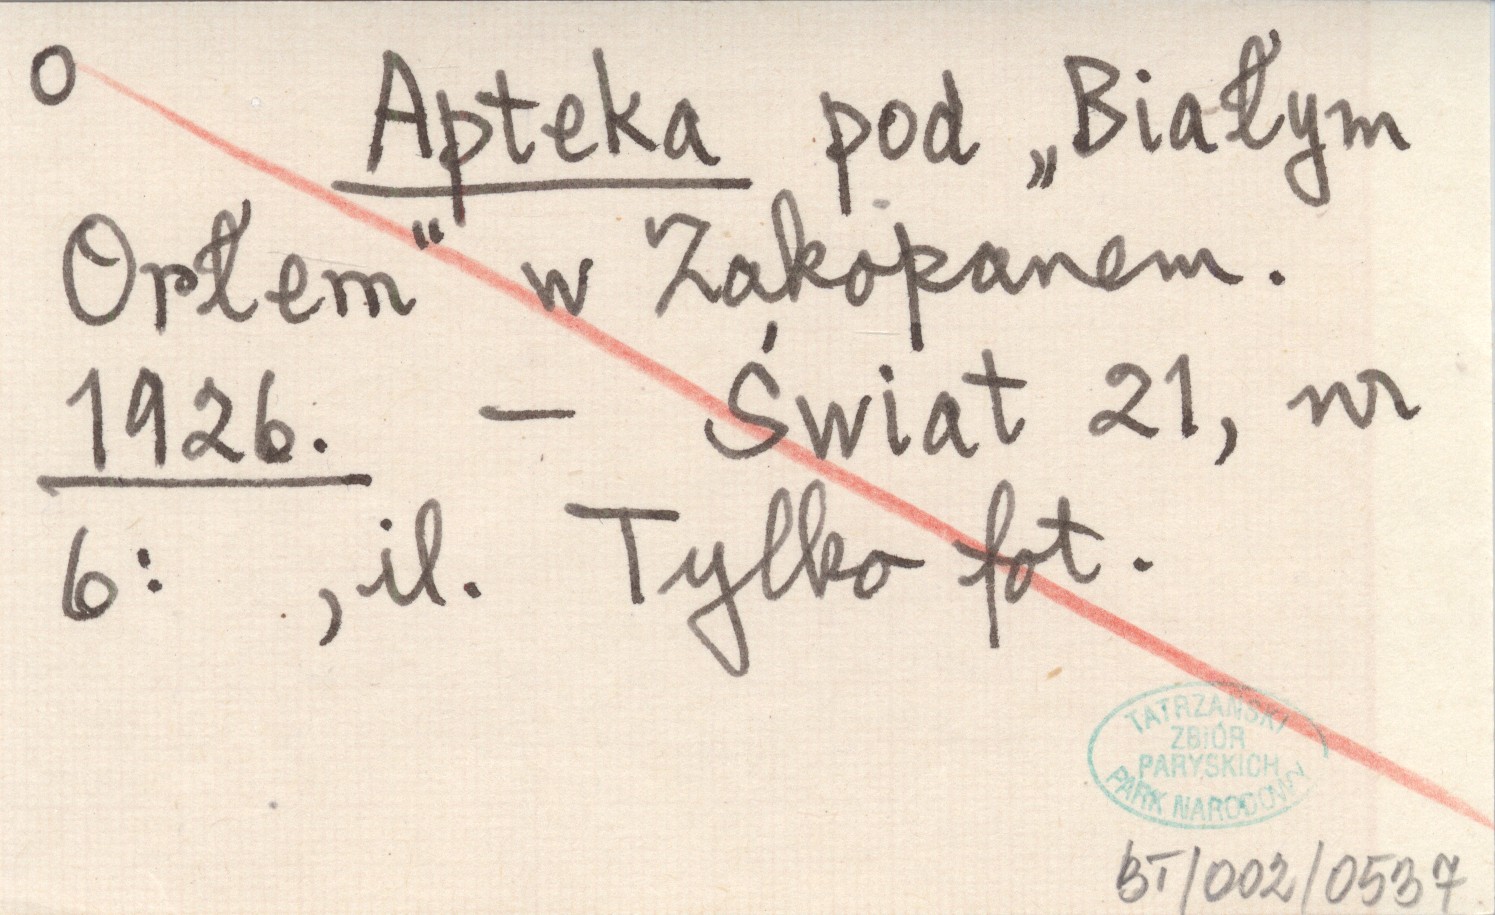 O Apteka pod „Białym
Orłem" w Zakopanem.
1926. — Świat 21, nr
6: , il. Tylko fot.
TATRZAŃSKI
ZBIÓR
PARYSKICH
PARK NARODOWY
BT/002/0537